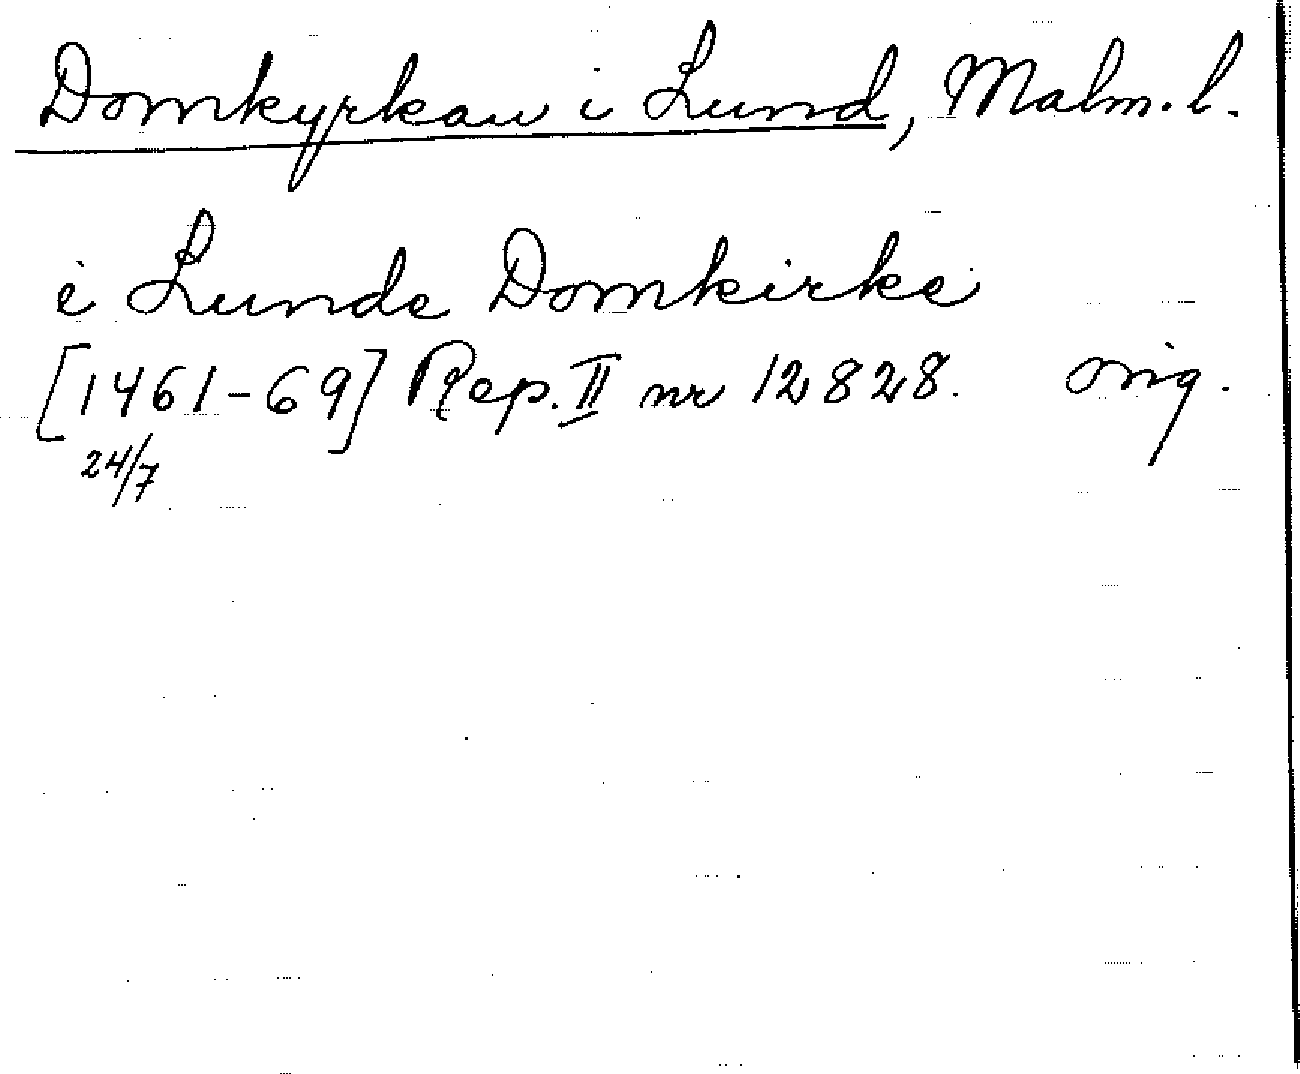 Domkyrkan i Lund, Malm. l.
i Lunde Domkirke
[1461-69] Rep. II nr 12828. orig.
24/7